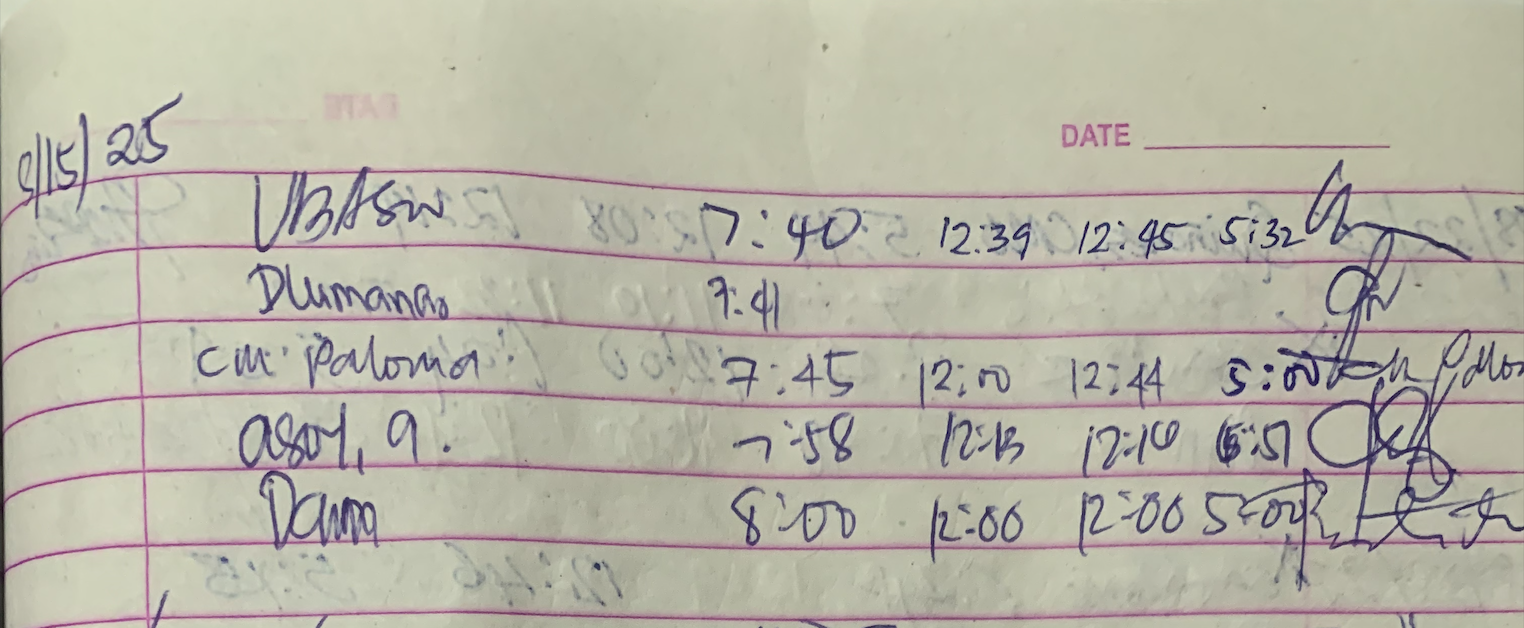 DATE
/15/25
UBASW 7:40 12:39 12:45 5:32
Dlumanao 7:41
cm. Paloma 7:45 12:00 12:44 5:00
asoy, a. 7:58 12:13 12:16
Dama 8:00 12:00 12:00 5:00